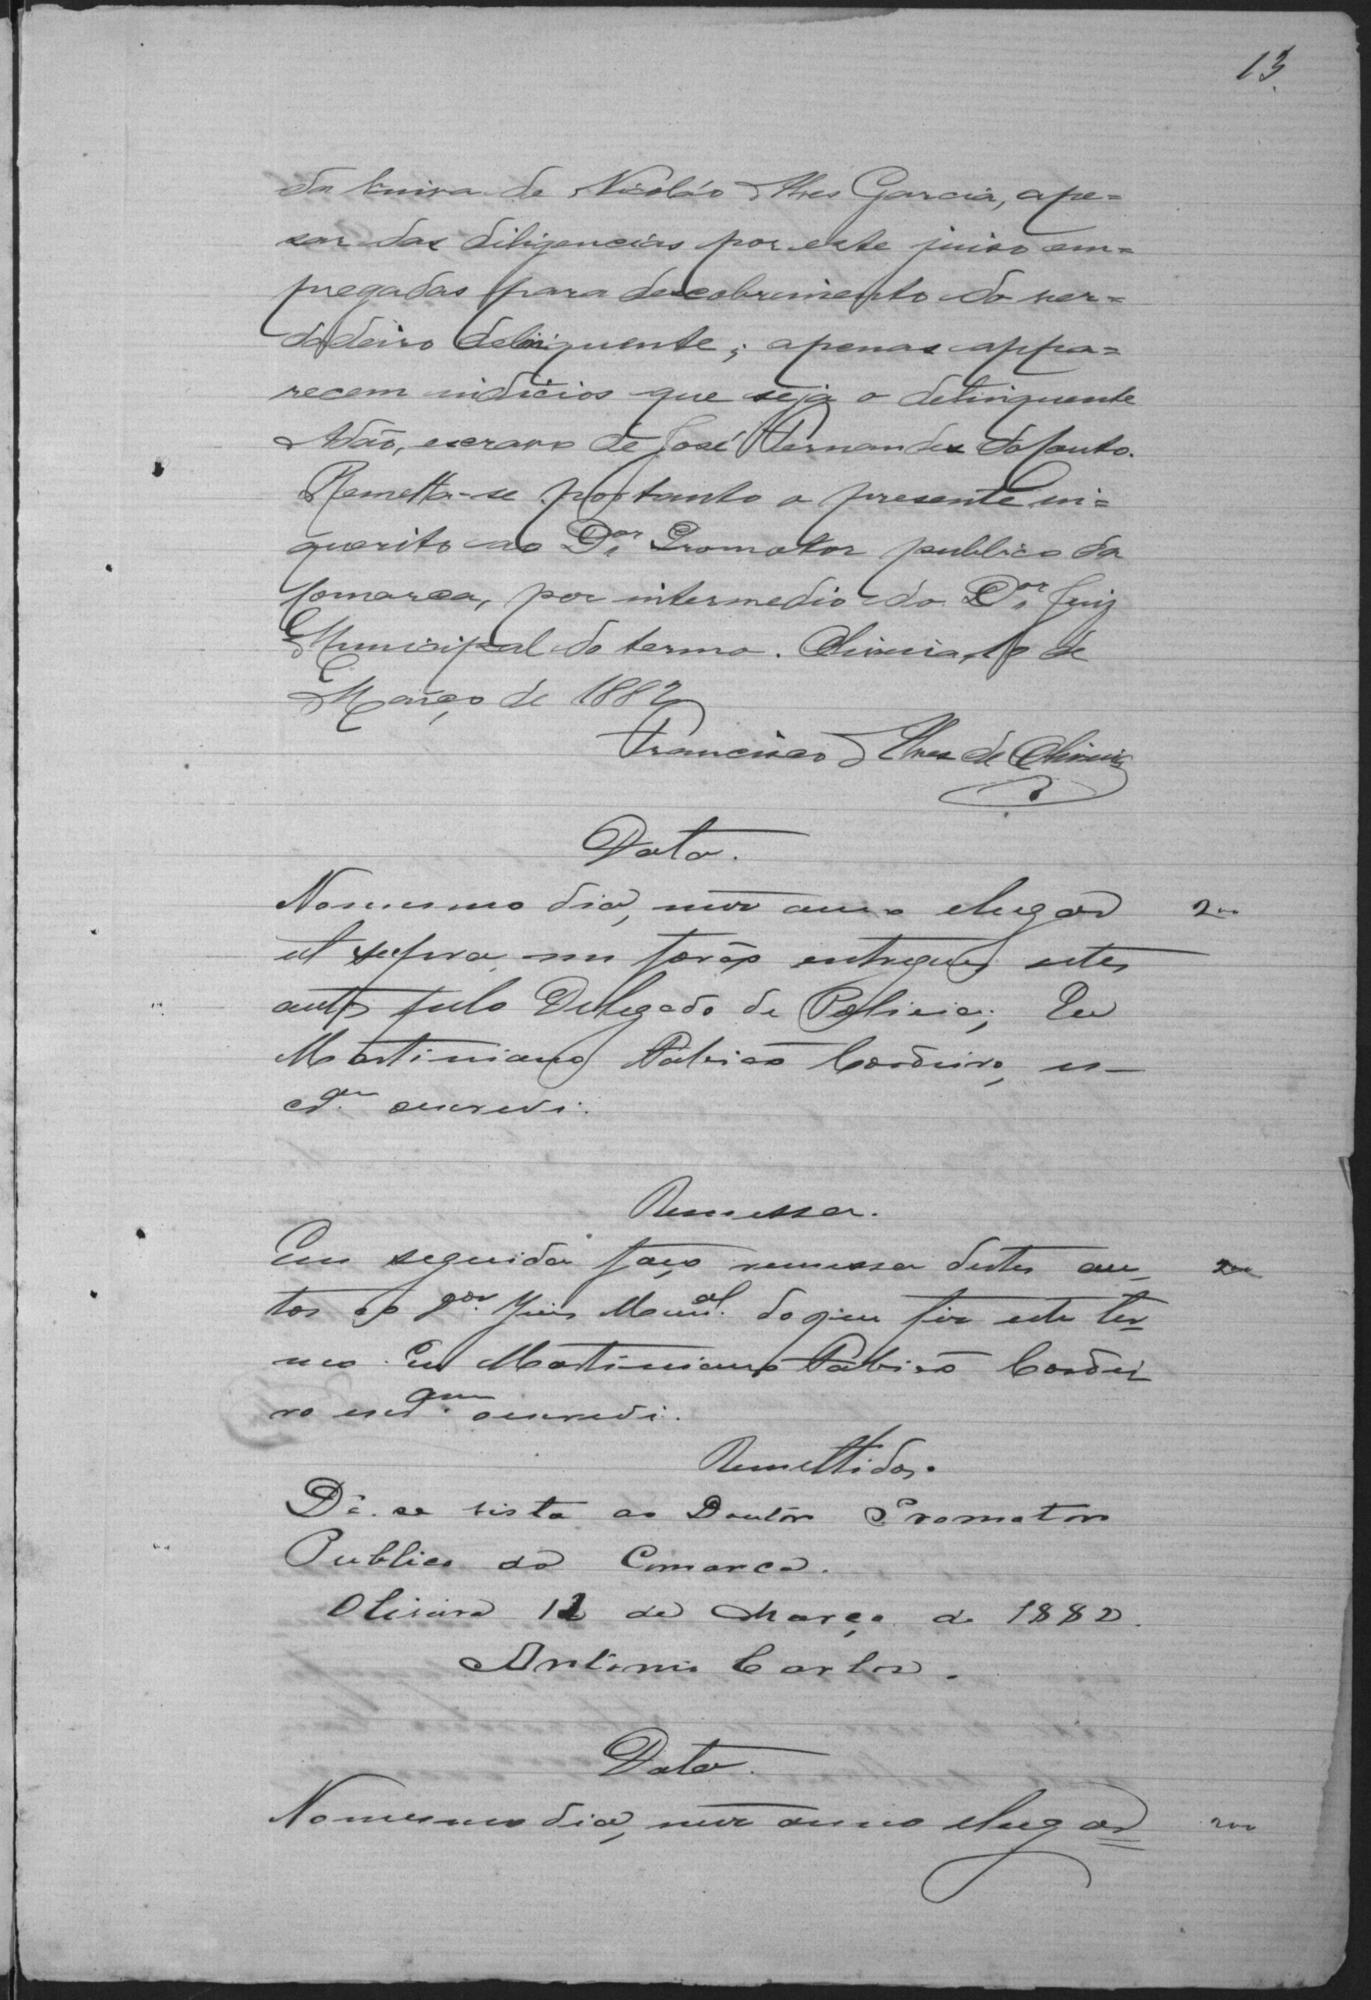 13
da viuva de Nicoláo Alves Garcia, ape=
sar das diligencias por este juiso em=
pregadas para descobrimento do ver=
dadeiro delinquente; apenas appa=
recem indicios que seja o delinquente
Adão, escravo de José Fernandes do Couto.
Remetta-se portanto o presente in=
querito ao Dor. Promotor publico da
Comarca, por intermedio do Dor. Juiz
Municipal do termo. Oliveira, 10 de
Março de 1882
Francisco Alves de Oliveira
Data.
No mesmo dia, mez anno e lugar
ut supra me forão entregues estes
autos pelo Delegado de Policia; Eu
Martiniano Fabião Cordeiro, es-
cram. oescrevi.
Remessa.
Em seguida faço remessa destes au-
tos ao Juis Munal. do que fiz este ter-
mo. Eu Martiniano Fabião Cordei
ro oescrevi.
Remettidos.
Dê-se vista ao Doutor Promotor
Publico da Comarca.
Oliveira 12 de Março de 1882.
Antonio Carlos.
Data.
No mesmo dia, mez anno e lugar